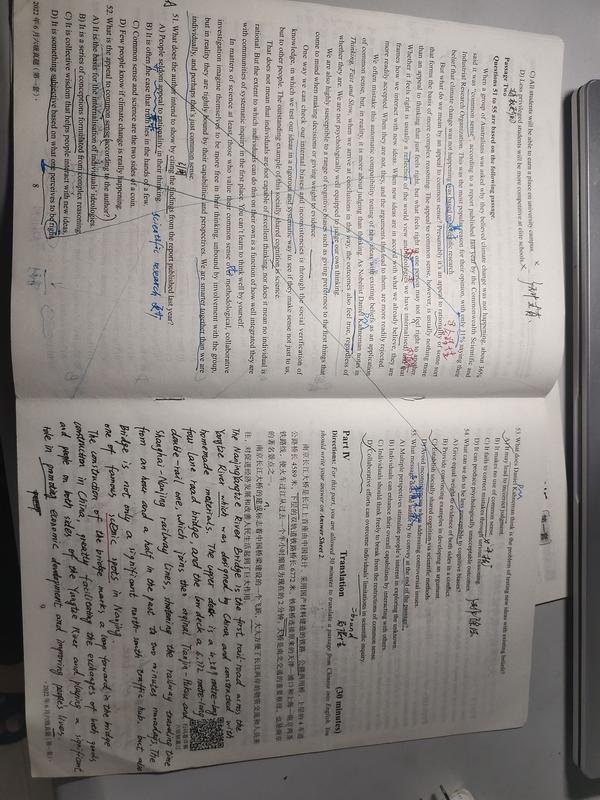 C) All students will be able to earn a place on university campus.
D) Less privileged students will be more competitive at elite schools.
Passage Two
Questions 51 to 55 are based on the following passage.
When a group of Australians was asked why they believed climate change was not happening, about 36%
said it was "common sense", according to a report published last year by the Commonwealth Scientific and
Industrial Research Organisation. This was the most popular reason for their opinion, with only 11% saying their
belief that climate change was not happening was based on scientific research.
But what do we mean by an appeal to common sense? Presumably it's an appeal to rationality of some sort
that forms the basis of more complex reasoning. The appeal to common sense, however, is usually nothing more
than an appeal to thinking that just feels right, but what feels right to one person may not feel right to another.
Whether it feels right is usually a reflection of the world view and ideologies we have internalised, and that
frames how we interact with new ideas. When new ideas are in accord with what we already believe, they are
more readily accepted. When they are not, they, and the arguments that lead to them, are more readily rejected.
We often mistake this automatic compatibility testing of new ideas with existing beliefs as an application
of common sense, but, in reality, it is more about judging than thinking. As Nobelist Daniel Kahneman notes in
Thinking, Fast and Slow, when we arrive at conclusions in this way, the outcomes also feel true, regardless of
whether they are. We are not psychologically well equipped to judge our own thinking.
We are also highly susceptible to a range of cognitive biases such as giving preference to the first things that
come to mind when making decisions or giving weight to evidence.
One way we can check our internal biases and inconsistencies is through the social verification of
knowledge, in which we test our ideas in a rigorous and systematic way to see if they make sense not just to us,
but to other people. The outstanding example of this socially shared cognition is science.
That does not mean that individuals are not capable of excellent thinking, nor does it mean no individual is
rational. But the extent to which individuals can do this on their own is a function of how well integrated they are
with communities of systematic inquiry in the first place. You can't learn to think well by yourself.
In matters of science at least, those who value their common sense over methodological, collaborative
investigation imagine themselves to be more free in their thinking, unbound by involvement with the group,
but in reality they are tightly bound by their capabilities and perspectives. We are smarter together than we are
individually, and perhaps that's just common sense.
51. What does the author intend to show by citing the findings from the report published last year?
A) People seldom appeal to rationality in their thinking.
B) It is often the case that truth lies in the hands of a few.
C) Common sense and science are the two sides of a coin.
D) Few people know if climate change is really happening.
scientific research
52. What is the appeal to common sense according to the author?
A) It is the basis for the internalisation of individuals' ideologies.
B) It is a series of conceptions formulated from complex reasoning.
C) It is collective wisdom that helps people interact with new ideas.
D) It is something subjective based on what one perceives to be right.
2022年6月六级真题(第一套) 8
53. What does Daniel Kahneman think is the problem of testing new ideas with existing beliefs?
A) It may lead to incorrect judgment.
C) It fails to correct mistakes through
D) It can produce psychologically unacceptable outcomes.
54. What can we do to be less susceptible to cognitive biases?
A) Give equal weight to evidence of both sides in a controversy.
B) Provide convincing examples in developing an argument.
C) Establish socially shared cognition via scientific methods.
D) Avoid inconsistencies when addressing controversial issues.
55. What message does the author try to convey at the end of the passage?
A) Multiple perspectives stimulate people's interest in exploring the unknown.
B) Individuals can enhance their overall capabilities by interacting with others.
C) Individuals should think freely to break from the restrictions of common sense.
D) Collaborative efforts can overcome individual limitations in scientific inquiry.
Part IV Translation (30 minutes)
Directions: For this part, you are allowed 30 minutes to translate a passage from Chinese into English. You
should write your answer on Answer Sheet 2.
南京长江大桥是长江上首座由中国设计、采用国产材料建造的铁路、公路两用桥，上层的4车道
公路桥长4589米，下层的双轨道铁路桥长6772米，铁路桥连接原来的天津—浦口和上海—南京两条
铁路线，使火车过江时间从过去一个半小时缩短为现在的2分钟。大桥是南北交通的重要枢纽，也是南京
的著名景点之一。
南京长江大桥的建成标志着中国桥梁建设的一个飞跃，大大方便了长江两岸的物资交流和人员来
往，对促进经济发展和改善人民生活起到了巨大作用。
The Nanjing Yangtze River Bridge is the first rail-road across the
Yangtze River which was designed by China and constructed with
homemade materials. The upper deck is a 4,589 metre-long
four lane road bridge, and the low deck, a 6,772 metre-long
double-rail one, which joins the original Tianjin-Pukou and
Shanghai-Nanjing railway lines, shortening the railway crossing time
from an hour and a half in the past to two minutes nowadays. The
Bridge is not only a significant north-south traffic hub but also
one of famous scenic spots in Nanjing.
The construction of the bridge marks a leap forward in the bridge
construction in China, greatly facilitating the exchanges of both goods
and people on both sides of the Yangtze River and playing a significant
role in promoting economic development and improving people's lives.
9 2022年6月六级真题(第一套)